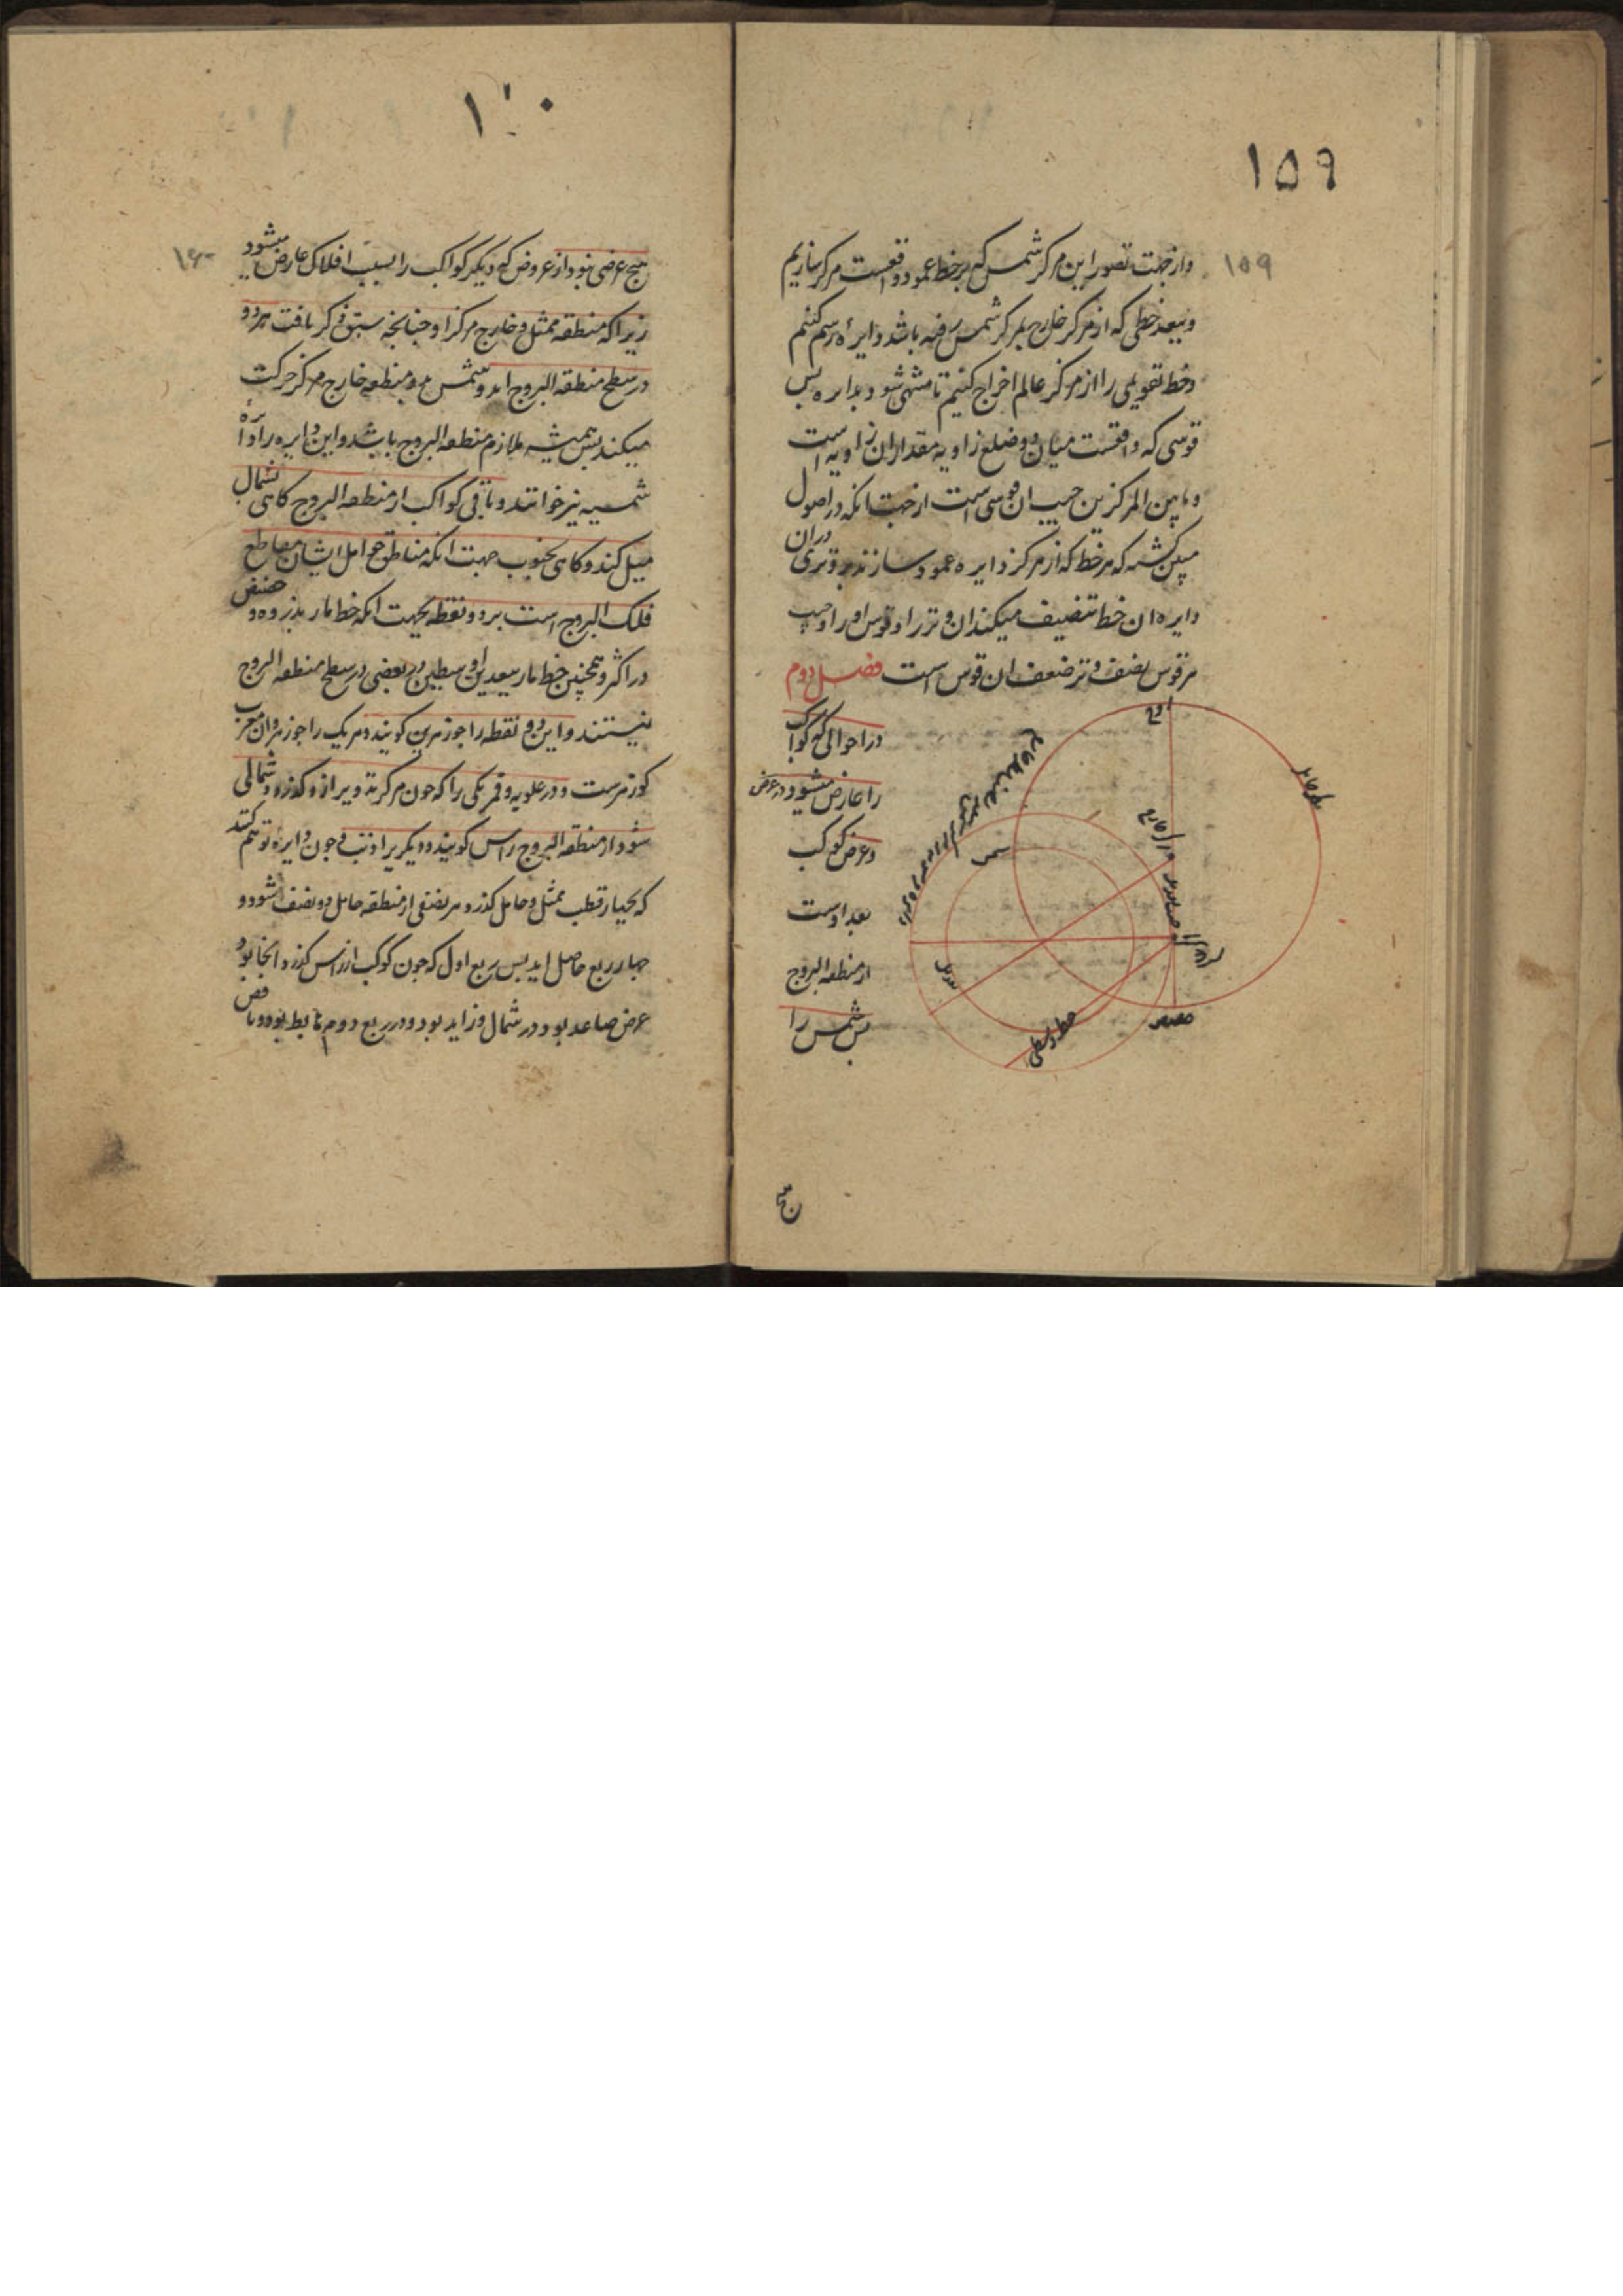 ۱۵۹
۱۵۹
و از جهت تصور این مرکز شمس که بر خط عمود واقعست مرکز سازیم
و ببعد خطی که از مرکز خارج بمرکز شمس رفته باشد دایرۀ رسم کنیم
و خط تقویمی را از مرکز عالم اخراج کنیم تا منتهی شود بدایره پس
قوسی که واقعست میان دو ضلع زاویه مقدار ان زاویه است
و ما بین المرکزین جیب ان قوسی است از جهت انکه در اصول
مبین کشته که هر خط که از مرکز دایره عمود سازند بر وتری دران
دایره ان خط تنصیف میکند ان وتر را و قوس او را و جیب
هر قوس نصف وتر ضعف ان قوس است فصل دوم
در احوالی که کواکب
را عارض میشود در عرض
و عرض کوکب
بعد اوست
از منطقه البروج
پس شمس را
اوج
شمس
هیچ
۱۶۰
هیچ عرضی نبود از عروض که دیکر کواکب را بسبب افلاک عارض میشود
زیرا که منطقه ممثل و خارج مرکز او چنانچه سبق ذکر یافت هر دو
در سطح منطقه البروج اند و شمس بر منطقه خارج مرکز حرکت
میکند پس همیشه ملازم منطقه البروج باشد و این دایره را دایرۀ
شمسیه نیز خوانند و باقی کواکب از منطقه البروج کاهی بشمال
میل کند و کاهی بجنوب جهت انکه مناطق حوامل ایشان مقاطع
فلک البروج است بر دو نقطه بجهت انکه خط مار بذروه و حضیض
در اکثر و همچنین خط مار ببعدین اوسطین در بعضی در سطح منطقه البروج
نیستند و این دو نقطه را جوزهرین کویند و هر یک را جوزهر و ان معرب
کوزهرست و در علویه و قمر یکی را که چون مرکز تدویر ازو کذرد و شمالی
شود از منطقه البروج راس کویند و دیکری را ذنب و چون دایرۀ توهم کنند
که بچهار قطب ممثل و حامل کذرد هر نصفی از منطقه حامل دو نصف شود و
چهار ربع حاصل اید پس ربع اول که چون کوکب از راس کذرد انجا بود
عرض صاعد بود در شمال و زاید بود و در ربع دوم هابط بود و ناقص